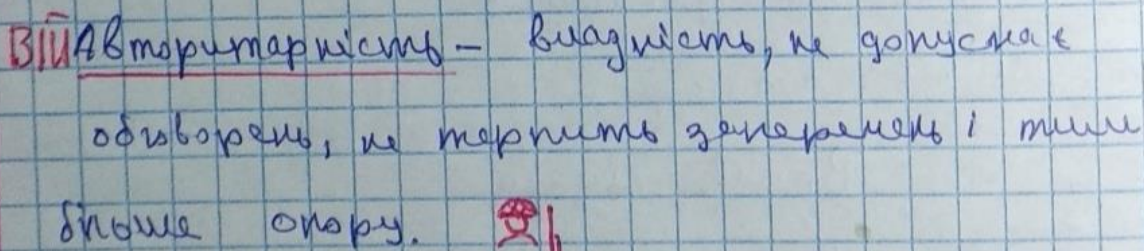 ВІЙ Авторитарність – владність, не допускає
обговорень, не терпить заперечень і тим
більше опору.